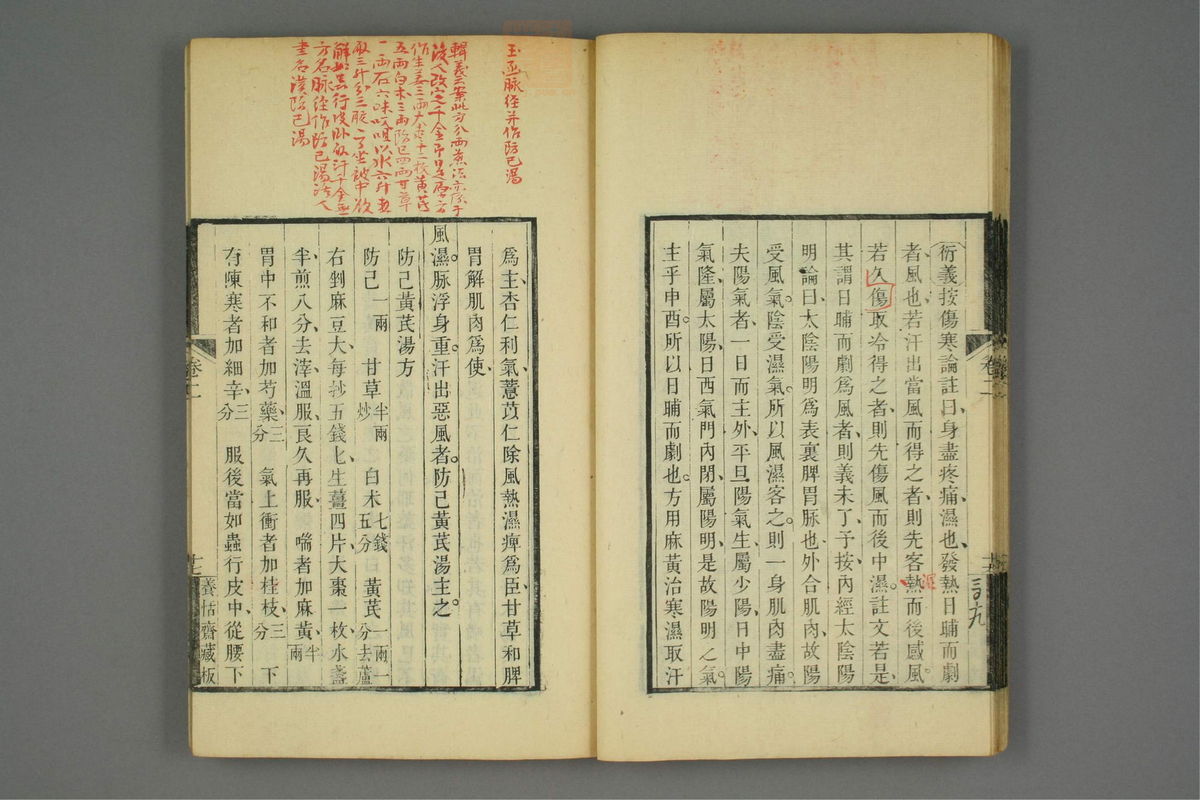 衍義按傷寒論註曰身盡疼痛濕也發熱日晡而劇
者風也若汗出當風而得之者則先客熱而後感風
濕
若久傷取冷得之者則先傷風而後中濕註文若是
其謂日晡而劇為風者則義未了予按內經太陰陽
明論曰太陰陽明為表裏脾胃脉也外合肌肉故陽
受風氣陰受濕氣所以風濕客之則一身肌肉盡痛
夫陽氣者一日而主外平旦陽氣生屬少陽日中陽
氣隆屬太陽日西氣門內閉屬陽明是故陽明之氣
主乎申酉所以日晡而劇也方用麻黃治寒濕取汗
卷二
玉函脉徑并作防己湯
輯義云案此方分兩煎法亦係于
後人改定千金却是原方
作生姜三兩大枣十二枚黃芪
五兩白朮三兩防己四兩甘草
一兩右六味㕮咀以水六升煮
取三升分三服
方名脉徑作防己湯
書名漢防己湯
為主杏仁利氣薏苡仁除風熱濕痺為臣甘草和脾
胃解肌肉為使
風濕脉浮身重汗出惡風者防己黃芪湯主之
防己黃芪湯方
防己一兩 甘草半兩炒 白朮七錢五分 黃芪一兩一分去蘆
右剉麻豆大每抄五錢匕生薑四片大棗一枚水盞
半煎八分去滓溫服良久再服 喘者加麻黃半兩
胃中不和者加芍藥三分 氣上衝者加桂枝三分 下
有陳寒者加細辛三分 服後當如蟲行皮中從腰下
卷二
養恬齋藏板